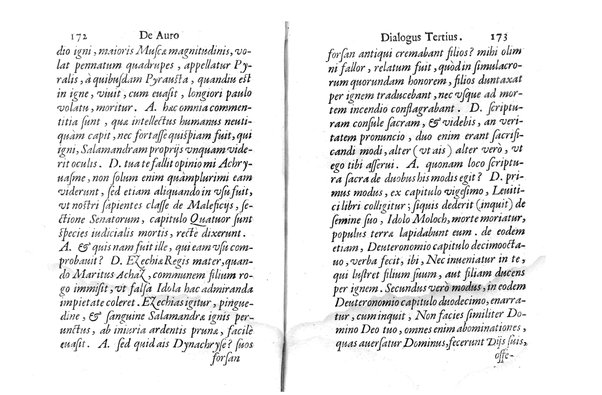 172 De Auro
dio igni, maioris Muscæ magnitudinis, vo-
lat pennatum quadrupes, appellatur Py-
ralis, à quibusdam Pyrausta, quandiu est
in igne, viuit, cum euasit, longiori paulo
volatu, moritur. A. hæc omnia commen-
titia sunt, quæ intellectus humanus neuti-
quàm capit, nec fortasse quispiam fuit, qui
igni, Salamandram proprijs vnquam vide-
rit oculis. D. tua te fallit opinio mi Achry-
uasme, non solum enim quàmplurimi eam
viderunt, sed etiam aliquando in vsu fuit,
vt nostri sapientes classe de Maleficijs, se-
ctione Senatorum, capitulo Quatuor sunt
species iudicialis mortis, rectè dixerunt.
A. & quis nam fuit ille, qui eam vsu com-
probauit? D. Ezechiæ Regis mater, quan-
do Maritus Achaz, communem filium ro-
go immisit, vt falsa Idola hac admiranda
impietate coleret. Ezechias igitur, pingue-
dine, & sanguine Salamandræ ignis per-
unctus, ab iniuria ardentis prunæ, facilè
euasit. A. sed quid ais Dynachryse? suos
forsan
Dialogus Tertius. 173
forsan antiqui cremabant filios? mihi olim
ni fallor, relatum fuit, quòd in simulacro-
rum quorundam honorem, filios duntaxat
per ignem traducebant, nec vsque ad mor-
tem incendio conflagrabant. D. scriptu-
ram consule sacram, & videbis, an veri-
tatem pronuncio, duo enim erant sacrifi-
candi modi, alter (vt ais) alter verò, vt
ego tibi asserui. A. quonam loco scriptu-
ra sacra de duobus his modis egit? D. pri-
mus modus, ex capitulo vigesimo, Leuiti-
ci libri colligitur; siquis dederit (inquit) de
semine suo, Idolo Moloch, morte moriatur,
populus terræ lapidabunt eum. de eodem
etiam, Deuteronomio capitulo decimoocta-
uo, verba fecit, ibi, Nec inueniatur in te,
qui lustret filium suum, aut filiam ducens
per ignem. Secundus verò modus, in eodem
Deuteronomio capitulo duodecimo, enarra-
tur, cum inquit, Non facies similiter Do-
mino Deo tuo, omnes enim abominationes,
quas auersatur Dominus, fecerunt Dijs suis,
offe-